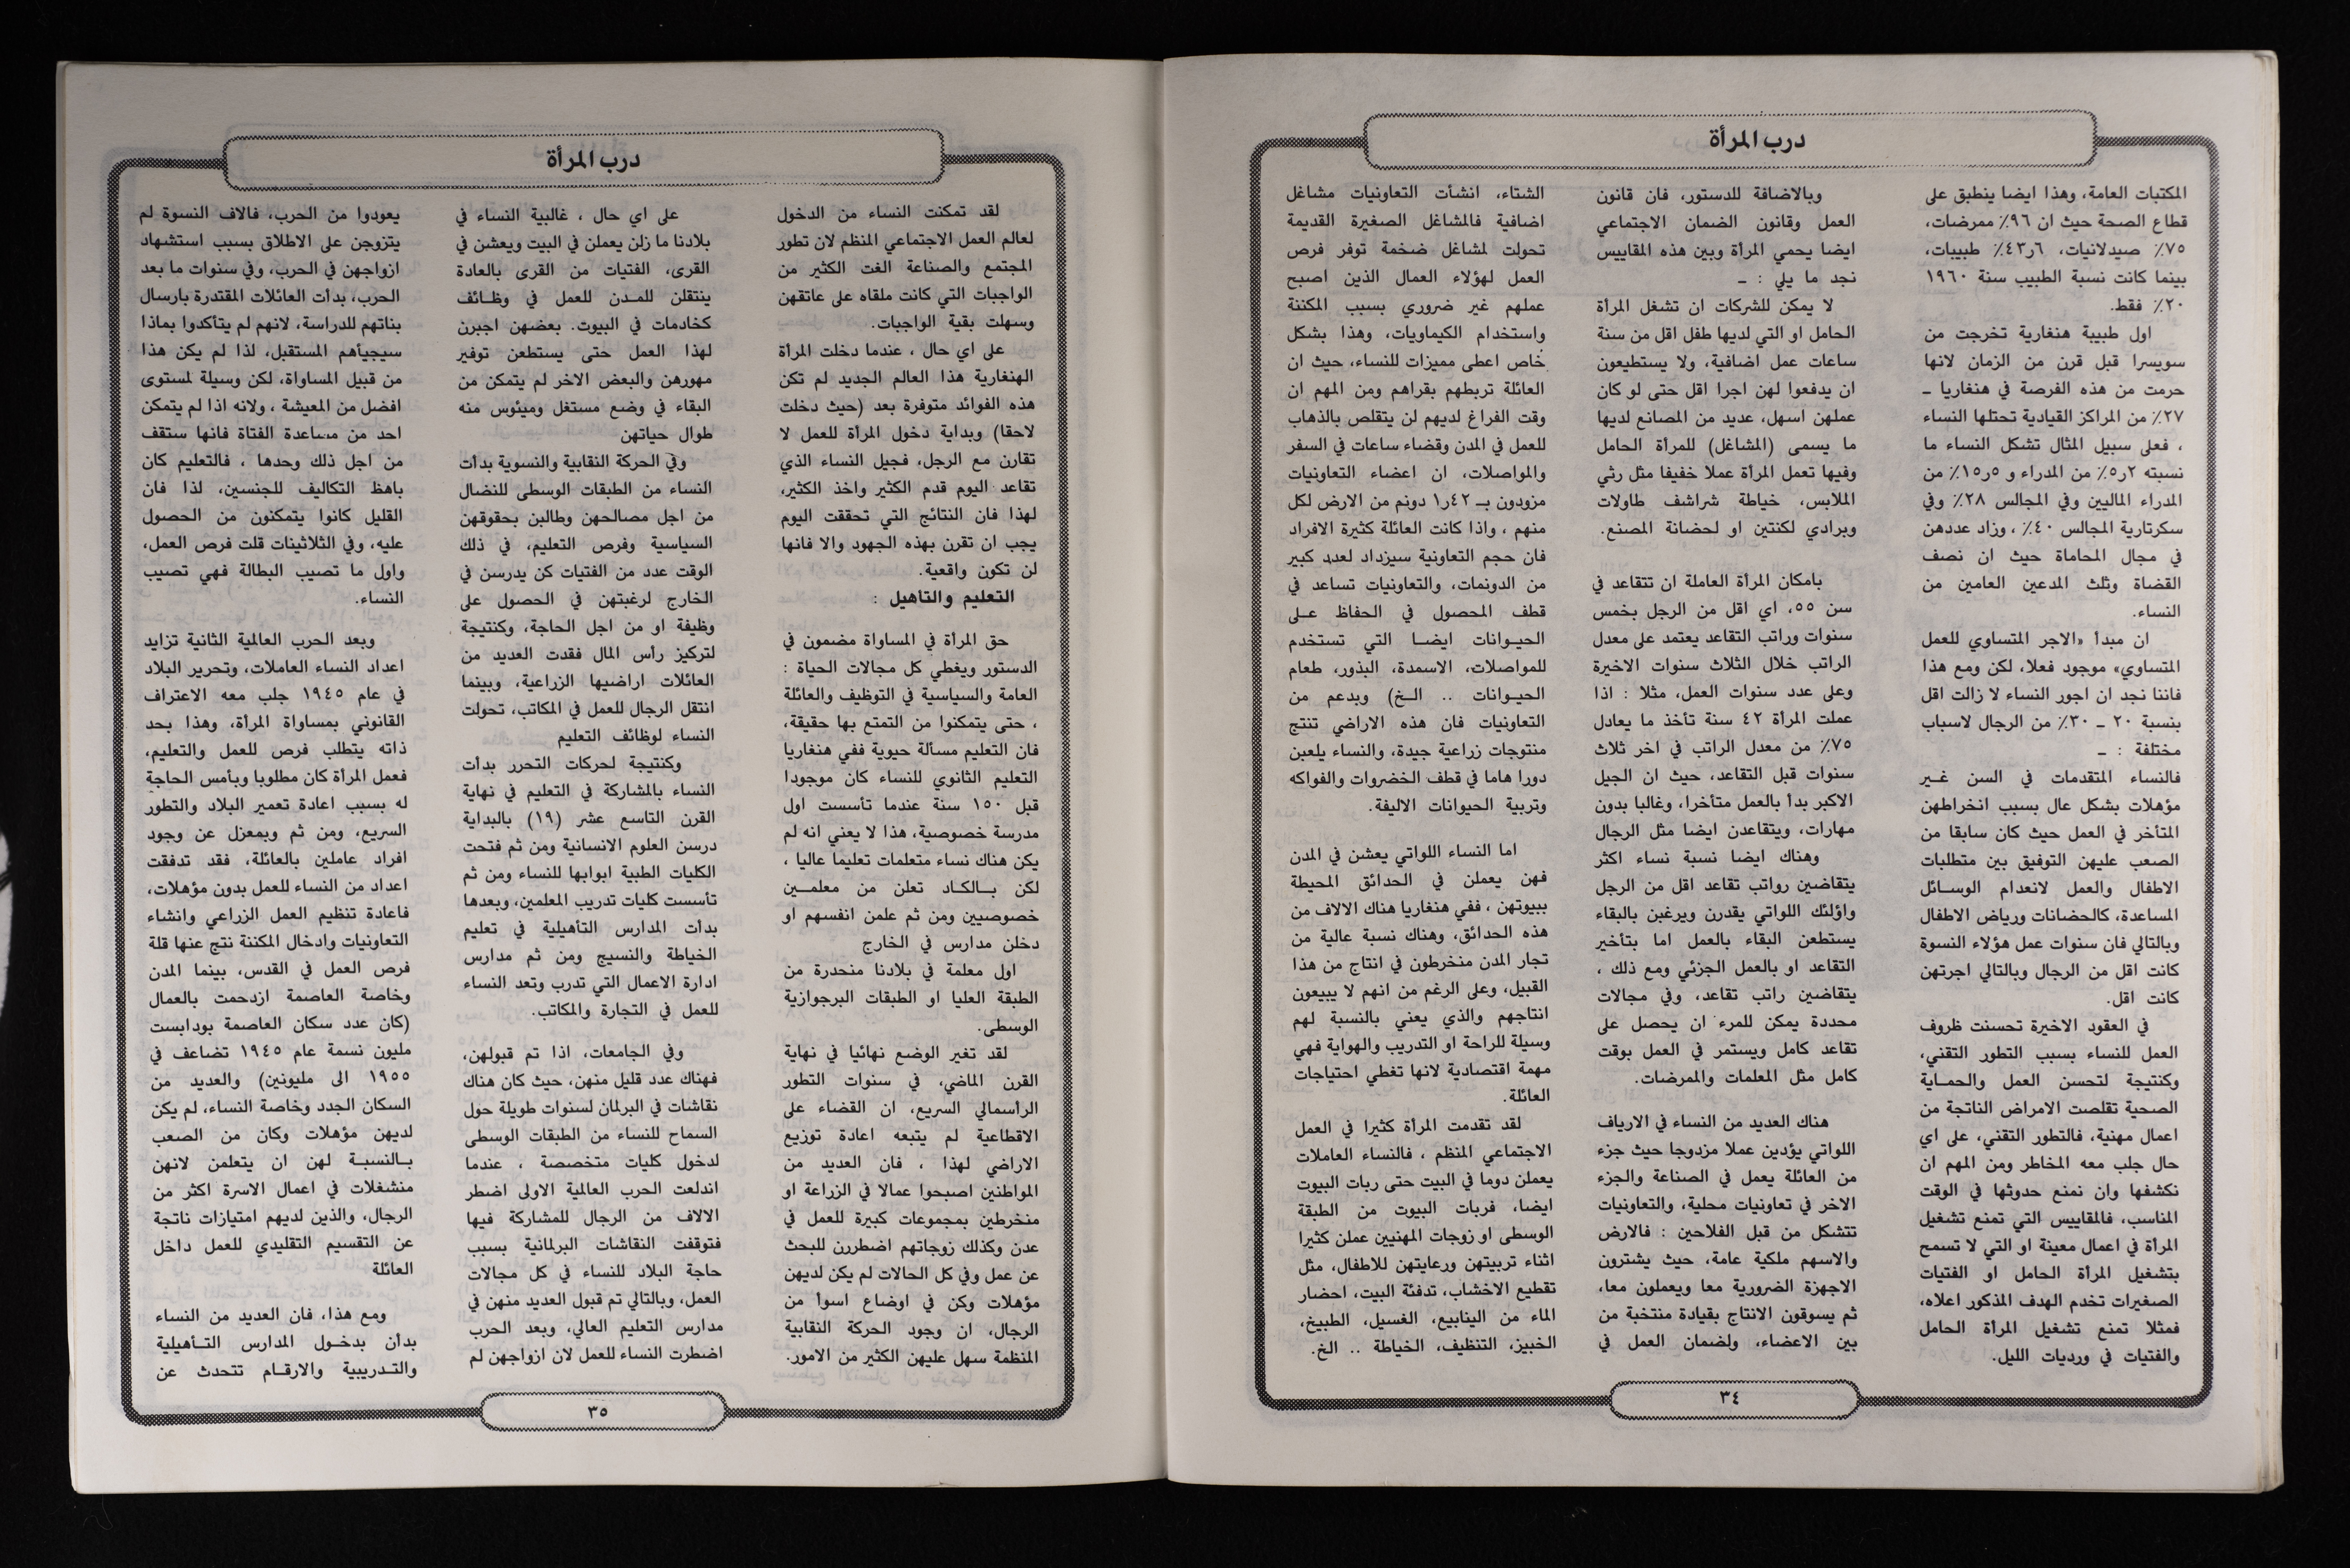 درب المرأة
المكتبات العامة، وهذا ايضا ينطبق على
قطاع الصحة حيث ان ٩٦٪ ممرضات،
٧٥٪ صيدلانيات، ٦ر٤٣٪ طبيبات،
بينما كانت نسبة الطبيب سنة ١٩٦٠
٢٠٪ فقط.
اول طبيبة هنغارية تخرجت من
سويسرا قبل قرن من الزمان لانها
حرمت من هذه الفرصة في هنغاريا ــ
٢٧٪ من المراكز القيادية تحتلها النساء
، فعلى سبيل المثال تشكل النساء ما
نسبته ٢ر٥٪ من المدراء و ٥ر١٥٪ من
المدراء الماليين وفي المجالس ٢٨٪ وفي
سكرتارية المجالس ٤٠٪ ، وزاد عددهن
في مجال المحاماة حيث ان نصف
القضاة وثلث المدعين العامين من
النساء.
ان مبدأ «الاجر المتساوي للعمل
المتساوي» موجود فعلا، لكن ومع هذا
فاننا نجد ان اجور النساء لا زالت اقل
بنسبة ٢٠ ــ ٣٠٪ من الرجال لاسباب
مختلفة : ــ
فالنساء المتقدمات في السن غير
مؤهلات بشكل عال بسبب انخراطهن
المتأخر في العمل حيث كان سابقا من
الصعب عليهن التوفيق بين متطلبات
الاطفال والعمل لانعدام الوسائل
المساعدة، كالحضانات ورياض الاطفال
وبالتالي فان سنوات عمل هؤلاء النسوة
كانت اقل من الرجال وبالتالي اجرتهن
كانت اقل.
في العقود الاخيرة تحسنت ظروف
العمل للنساء بسبب التطور التقني،
وكنتيجة لتحسن العمل والحماية
الصحية تقلصت الامراض الناتجة من
اعمال مهنية، فالتطور التقني، على اي
حال جلب معه المخاطر ومن المهم ان
نكشفها وان نمنع حدوثها في الوقت
المناسب، فالمقاييس التي تمنع تشغيل
المرأة في اعمال معينة او التي لا تسمح
بتشغيل المرأة الحامل او الفتيات
الصغيرات تخدم الهدف المذكور اعلاه،
فمثلا تمنع تشغيل المرأة الحامل
والفتيات في ورديات الليل.
وبالاضافة للدستور، فان قانون
العمل وقانون الضمان الاجتماعي
ايضا يحمي المرأة وبين هذه المقاييس
نجد ما يلي : ــ
لا يمكن للشركات ان تشغل المرأة
الحامل او التي لديها طفل اقل من سنة
ساعات عمل اضافية، ولا يستطيعون
ان يدفعوا لهن اجرا اقل حتى لو كان
عملهن اسهل، عديد من المصانع لديها
ما يسمى (المشاغل) للمرأة الحامل
وفيها تعمل المرأة عملا خفيفا مثل رثي
الملابس، خياطة شراشف طاولات
وبرادي لكنتين او لحضانة المصنع.
بامكان المرأة العاملة ان تتقاعد في
سن ٥٥، اي اقل من الرجل بخمس
سنوات وراتب التقاعد يعتمد على معدل
الراتب خلال الثلاث سنوات الاخيرة
وعلى عدد سنوات العمل، مثلا : اذا
عملت المرأة ٤٢ سنة تأخذ ما يعادل
٧٥٪ من معدل الراتب في اخر ثلاث
سنوات قبل التقاعد، حيث ان الجيل
الاكبر بدأ بالعمل متأخرا، وغالبا بدون
مهارات، ويتقاعدن ايضا مثل الرجال
وهناك ايضا نسبة نساء اكثر
يتقاضين رواتب تقاعد اقل من الرجل
واؤلئك اللواتي يقدرن ويرغبن بالبقاء
يستطعن البقاء بالعمل اما بتأخير
التقاعد او بالعمل الجزئي ومع ذلك ،
يتقاضين راتب تقاعد، وفي مجالات
محددة يمكن للمرء ان يحصل على
تقاعد كامل ويستمر في العمل بوقت
كامل مثل المعلمات والممرضات.
هناك العديد من النساء في الارياف
اللواتي يؤدين عملا مزدوجا حيث جزء
من العائلة يعمل في الصناعة والجزء
الاخر في تعاونيات محلية، والتعاونيات
تتشكل من قبل الفلاحين : فالارض
والاسهم ملكية عامة، حيث يشترون
الاجهزة الضرورية معا ويعملون معا،
ثم يسوقون الانتاج بقيادة منتخبة من
بين الاعضاء، ولضمان العمل في
الشتاء، انشأت التعاونيات مشاغل
اضافية فالمشاغل الصغيرة القديمة
تحولت لمشاغل ضخمة توفر فرص
العمل لهؤلاء العمال الذين اصبح
عملهم غير ضروري بسبب المكننة
واستخدام الكيماويات، وهذا بشكل
خاص اعطى مميزات للنساء، حيث ان
العائلة تربطهم بقراهم ومن المهم ان
وقت الفراغ لديهم لن يتقلص بالذهاب
للعمل في المدن وقضاء ساعات في السفر
والمواصلات، ان اعضاء التعاونيات
مزودون بـ ٤٢ر١ دونم من الارض لكل
منهم ، واذا كانت العائلة كثيرة الافراد
فان حجم التعاونية سيزداد لعدد كبير
من الدونمات، والتعاونيات تساعد في
قطف المحصول في الحفاظ على
الحيوانات ايضا التي تستخدم
للمواصلات، الاسمدة، البذور، طعام
الحيوانات .. الخ) وبدعم من
التعاونيات فان هذه الاراضي تنتج
منتوجات زراعية جيدة، والنساء يلعبن
دورا هاما في قطف الخضروات والفواكه
وتربية الحيوانات الاليفة.
اما النساء اللواتي يعشن في المدن
فهن يعملن في الحدائق المحيطة
ببيوتهن ، ففي هنغاريا هناك الالاف من
هذه الحدائق، وهناك نسبة عالية من
تجار المدن منخرطون في انتاج من هذا
القبيل، وعلى الرغم من انهم لا يبيعون
انتاجهم والذي يعني بالنسبة لهم
وسيلة للراحة او التدريب والهواية فهي
مهمة اقتصادية لانها تغطي احتياجات
العائلة.
لقد تقدمت المرأة كثيرا في العمل
الاجتماعي المنظم ، فالنساء العاملات
يعملن دوما في البيت حتى ربات البيوت
ايضا، فربات البيوت من الطبقة
الوسطى او زوجات المهنيين عملن كثيرا
اثناء تربيتهن ورعايتهن للاطفال، مثل
تقطيع الاخشاب، تدفئة البيت، احضار
الماء من الينابيع، الغسيل، الطبيخ،
الخبيز، التنظيف، الخياطة .. الخ.
٣٤
درب المرأة
لقد تمكنت النساء من الدخول
لعالم العمل الاجتماعي المنظم لان تطور
المجتمع والصناعة الغت الكثير من
الواجبات التي كانت ملقاه على عاتقهن
وسهلت بقية الواجبات.
على اي حال ، عندما دخلت المرأة
الهنغارية هذا العالم الجديد لم تكن
هذه الفوائد متوفرة بعد (حيث دخلت
لاحقا) وبداية دخول المرأة للعمل لا
تقارن مع الرجل، فجيل النساء الذي
تقاعد اليوم قدم الكثير واخذ الكثير،
لهذا فان النتائج التي تحققت اليوم
يجب ان تقرن بهذه الجهود والا فانها
لن تكون واقعية.
التعليم والتأهيل :
حق المرأة في المساواة مضمون في
الدستور ويغطي كل مجالات الحياة :
العامة والسياسية في التوظيف والعائلة
، حتى يتمكنوا من التمتع بها حقيقة،
فان التعليم مسألة حيوية ففي هنغاريا
التعليم الثانوي للنساء كان موجودا
قبل ١٥٠ سنة عندما تأسست اول
مدرسة خصوصية، هذا لا يعني انه لم
يكن هناك نساء متعلمات تعليما عاليا ،
لكن بالكاد تعلن من معلمين
خصوصيين ومن ثم علمن انفسهم او
دخلن مدارس في الخارج
اول معلمة في بلادنا منحدرة من
الطبقة العليا او الطبقات البرجوازية
الوسطى.
لقد تغير الوضع نهائيا في نهاية
القرن الماضي، في سنوات التطور
الرأسمالي السريع، ان القضاء على
الاقطاعية لم يتبعه اعادة توزيع
الاراضي لهذا ، فان العديد من
المواطنين اصبحوا عمالا في الزراعة او
منخرطين بمجموعات كبيرة للعمل في
عدن وكذلك زوجاتهم اضطررن للبحث
عن عمل وفي كل الحالات لم يكن لديهن
مؤهلات وكن في اوضاع اسوأ من
الرجال، ان وجود الحركة النقابية
المنظمة سهل عليهن الكثير من الامور.
على اي حال ، غالبية النساء في
بلادنا ما زلن يعملن في البيت ويعشن في
القرى، الفتيات من القرى بالعادة
ينتقلن للمدن للعمل في وظائف
كخادمات في البيوت. بعضهن اجبرن
لهذا العمل حتى يستطعن توفير
مهورهن والبعض الاخر لم يتمكن من
البقاء في وضع مستغل وميئوس منه
طوال حياتهن
وفي الحركة النقابية والنسوية بدأت
النساء من الطبقات الوسطى للنضال
من اجل مصالحهن وطالبن بحقوقهن
السياسية وفرص التعليم، في ذلك
الوقت عدد من الفتيات كن يدرسن في
الخارج لرغبتهن في الحصول على
وظيفة او من اجل الحاجة، وكنتيجة
لتركيز رأس المال فقدت العديد من
العائلات اراضيها الزراعية، وبينما
انتقل الرجال للعمل في المكاتب، تحولت
النساء لوظائف التعليم
وكنتيجة لحركات التحرر بدأت
النساء بالمشاركة في التعليم في نهاية
القرن التاسع عشر (١٩) بالبداية
درسن العلوم الانسانية ومن ثم فتحت
الكليات الطبية ابوابها للنساء ومن ثم
تأسست كليات تدريب المعلمين، وبعدها
بدأت المدارس التأهيلية في تعليم
الخياطة والنسيج ومن ثم مدارس
ادارة الاعمال التي تدرب وتعد النساء
للعمل في التجارة والمكاتب.
وفي الجامعات، اذا تم قبولهن،
فهناك عدد قليل منهن، حيث كان هناك
نقاشات في البرلمان لسنوات طويلة حول
السماح للنساء من الطبقات الوسطى
لدخول كليات متخصصة ، عندما
اندلعت الحرب العالمية الاولى اضطر
الالاف من الرجال للمشاركة فيها
فتوقفت النقاشات البرلمانية بسبب
حاجة البلاد للنساء في كل مجالات
العمل، وبالتالي تم قبول العديد منهن في
مدارس التعليم العالي، وبعد الحرب
اضطرت النساء للعمل لان ازواجهن لم
يعودوا من الحرب، فالاف النسوة لم
يتزوجن على الاطلاق بسبب استشهاد
ازواجهن في الحرب، وفي سنوات ما بعد
الحرب، بدأت العائلات المقتدرة بارسال
بناتهم للدراسة، لانهم لم يتأكدوا بماذا
سيجيأهم المستقبل، لذا لم يكن هذا
من قبيل المساواة، لكن وسيلة لمستوى
افضل من المعيشة ، ولانه اذا لم يتمكن
احد من مساعدة الفتاة فانها ستقف
من اجل ذلك وحدها ، فالتعليم كان
باهظ التكاليف للجنسين، لذا فان
القليل كانوا يتمكنون من الحصول
عليه، وفي الثلاثينات قلت فرص العمل،
واول ما تصيب البطالة فهي تصيب
النساء.
وبعد الحرب العالمية الثانية تزايد
اعداد النساء العاملات، وتحرير البلاد
في عام ١٩٤٥ جلب معه الاعتراف
القانوني بمساواة المرأة، وهذا بحد
ذاته يتطلب فرص للعمل والتعليم،
فعمل المرأة كان مطلوبا وبأمس الحاجة
له بسبب اعادة تعمير البلاد والتطور
السريع، ومن ثم وبمعزل عن وجود
افراد عاملين بالعائلة، فقد تدفقت
اعداد من النساء للعمل بدون مؤهلات،
فاعادة تنظيم العمل الزراعي وانشاء
التعاونيات وادخال المكننة نتج عنها قلة
فرص العمل في القدس، بينما المدن
وخاصة العاصمة ازدحمت بالعمال
(كان عدد سكان العاصمة بودابست
مليون نسمة عام ١٩٤٥ تضاعف في
١٩٥٥ الى مليونين) والعديد من
السكان الجدد وخاصة النساء، لم يكن
لديهن مؤهلات وكان من الصعب
بالنسبة لهن ان يتعلمن لانهن
منشغلات في اعمال الاسرة اكثر من
الرجال، والذين لديهم امتيازات ناتجة
عن التقسيم التقليدي للعمل داخل
العائلة
ومع هذا، فان العديد من النساء
بدأن بدخول المدارس التأهيلية
والتدريبية والارقام تتحدث عن
٣٥